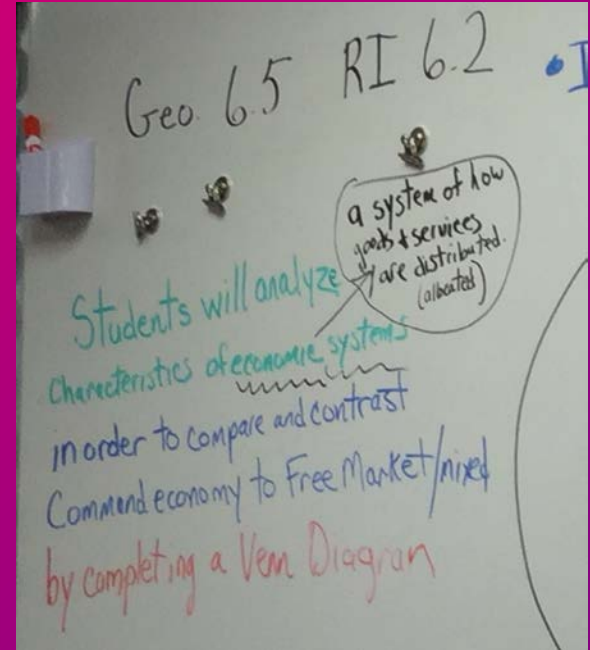 Geo. 6.5 RI 6.2
a system of how
goods & services
are distributed.
(allocated)
Students will analyze
Characteristics of economic systems
in order to compare and contrast
Command economy to Free Market/mixed
by completing a Venn Diagram